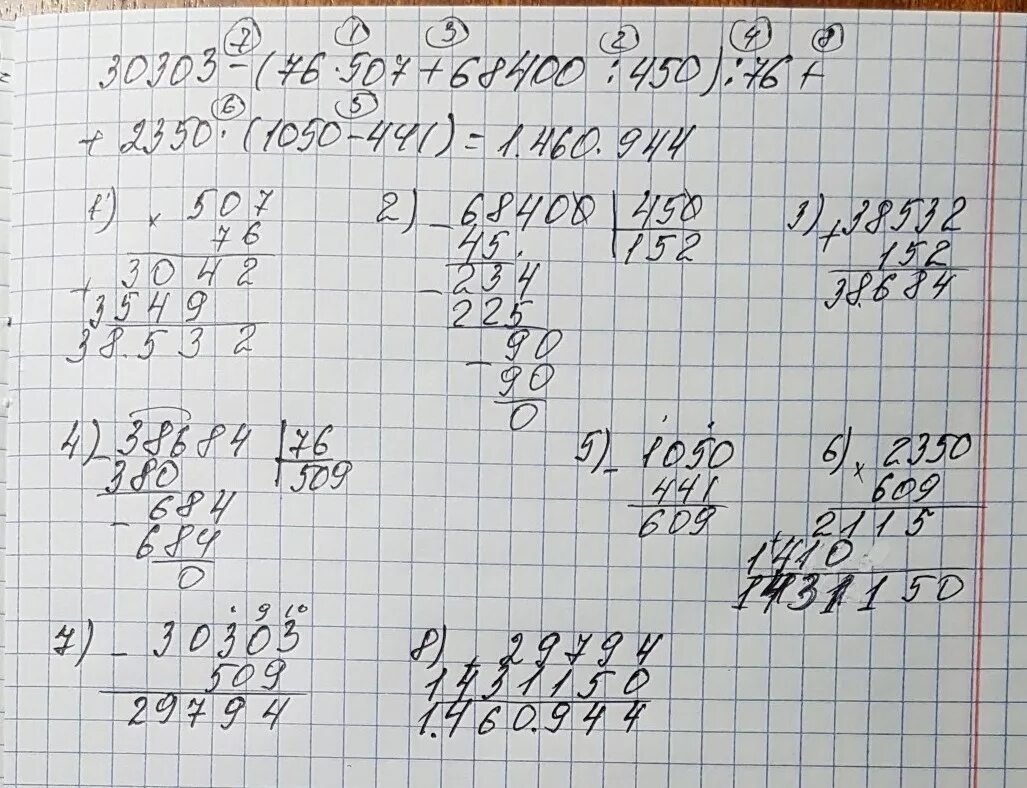 ⑦ ① ③ ② ④ ⑧
30303-(76·507+68400:450):76+
⑥ ⑤
+2350·(1050-441)=1.460.944
1) × 507
76
+ 3042
3549
38.532
2) - 68400 | 450
45. | 152
- 234
225
- 90
90
0
3) + 38532
152
38.684
4) - 38684 | 76
380 | 509
- 684
684
0
5) - 1050
441
609
6) × 2350
609
+ 2115
1410
1431150
9 10
7) - 30303
509
29794
8) + 29794
1431150
1.460.944